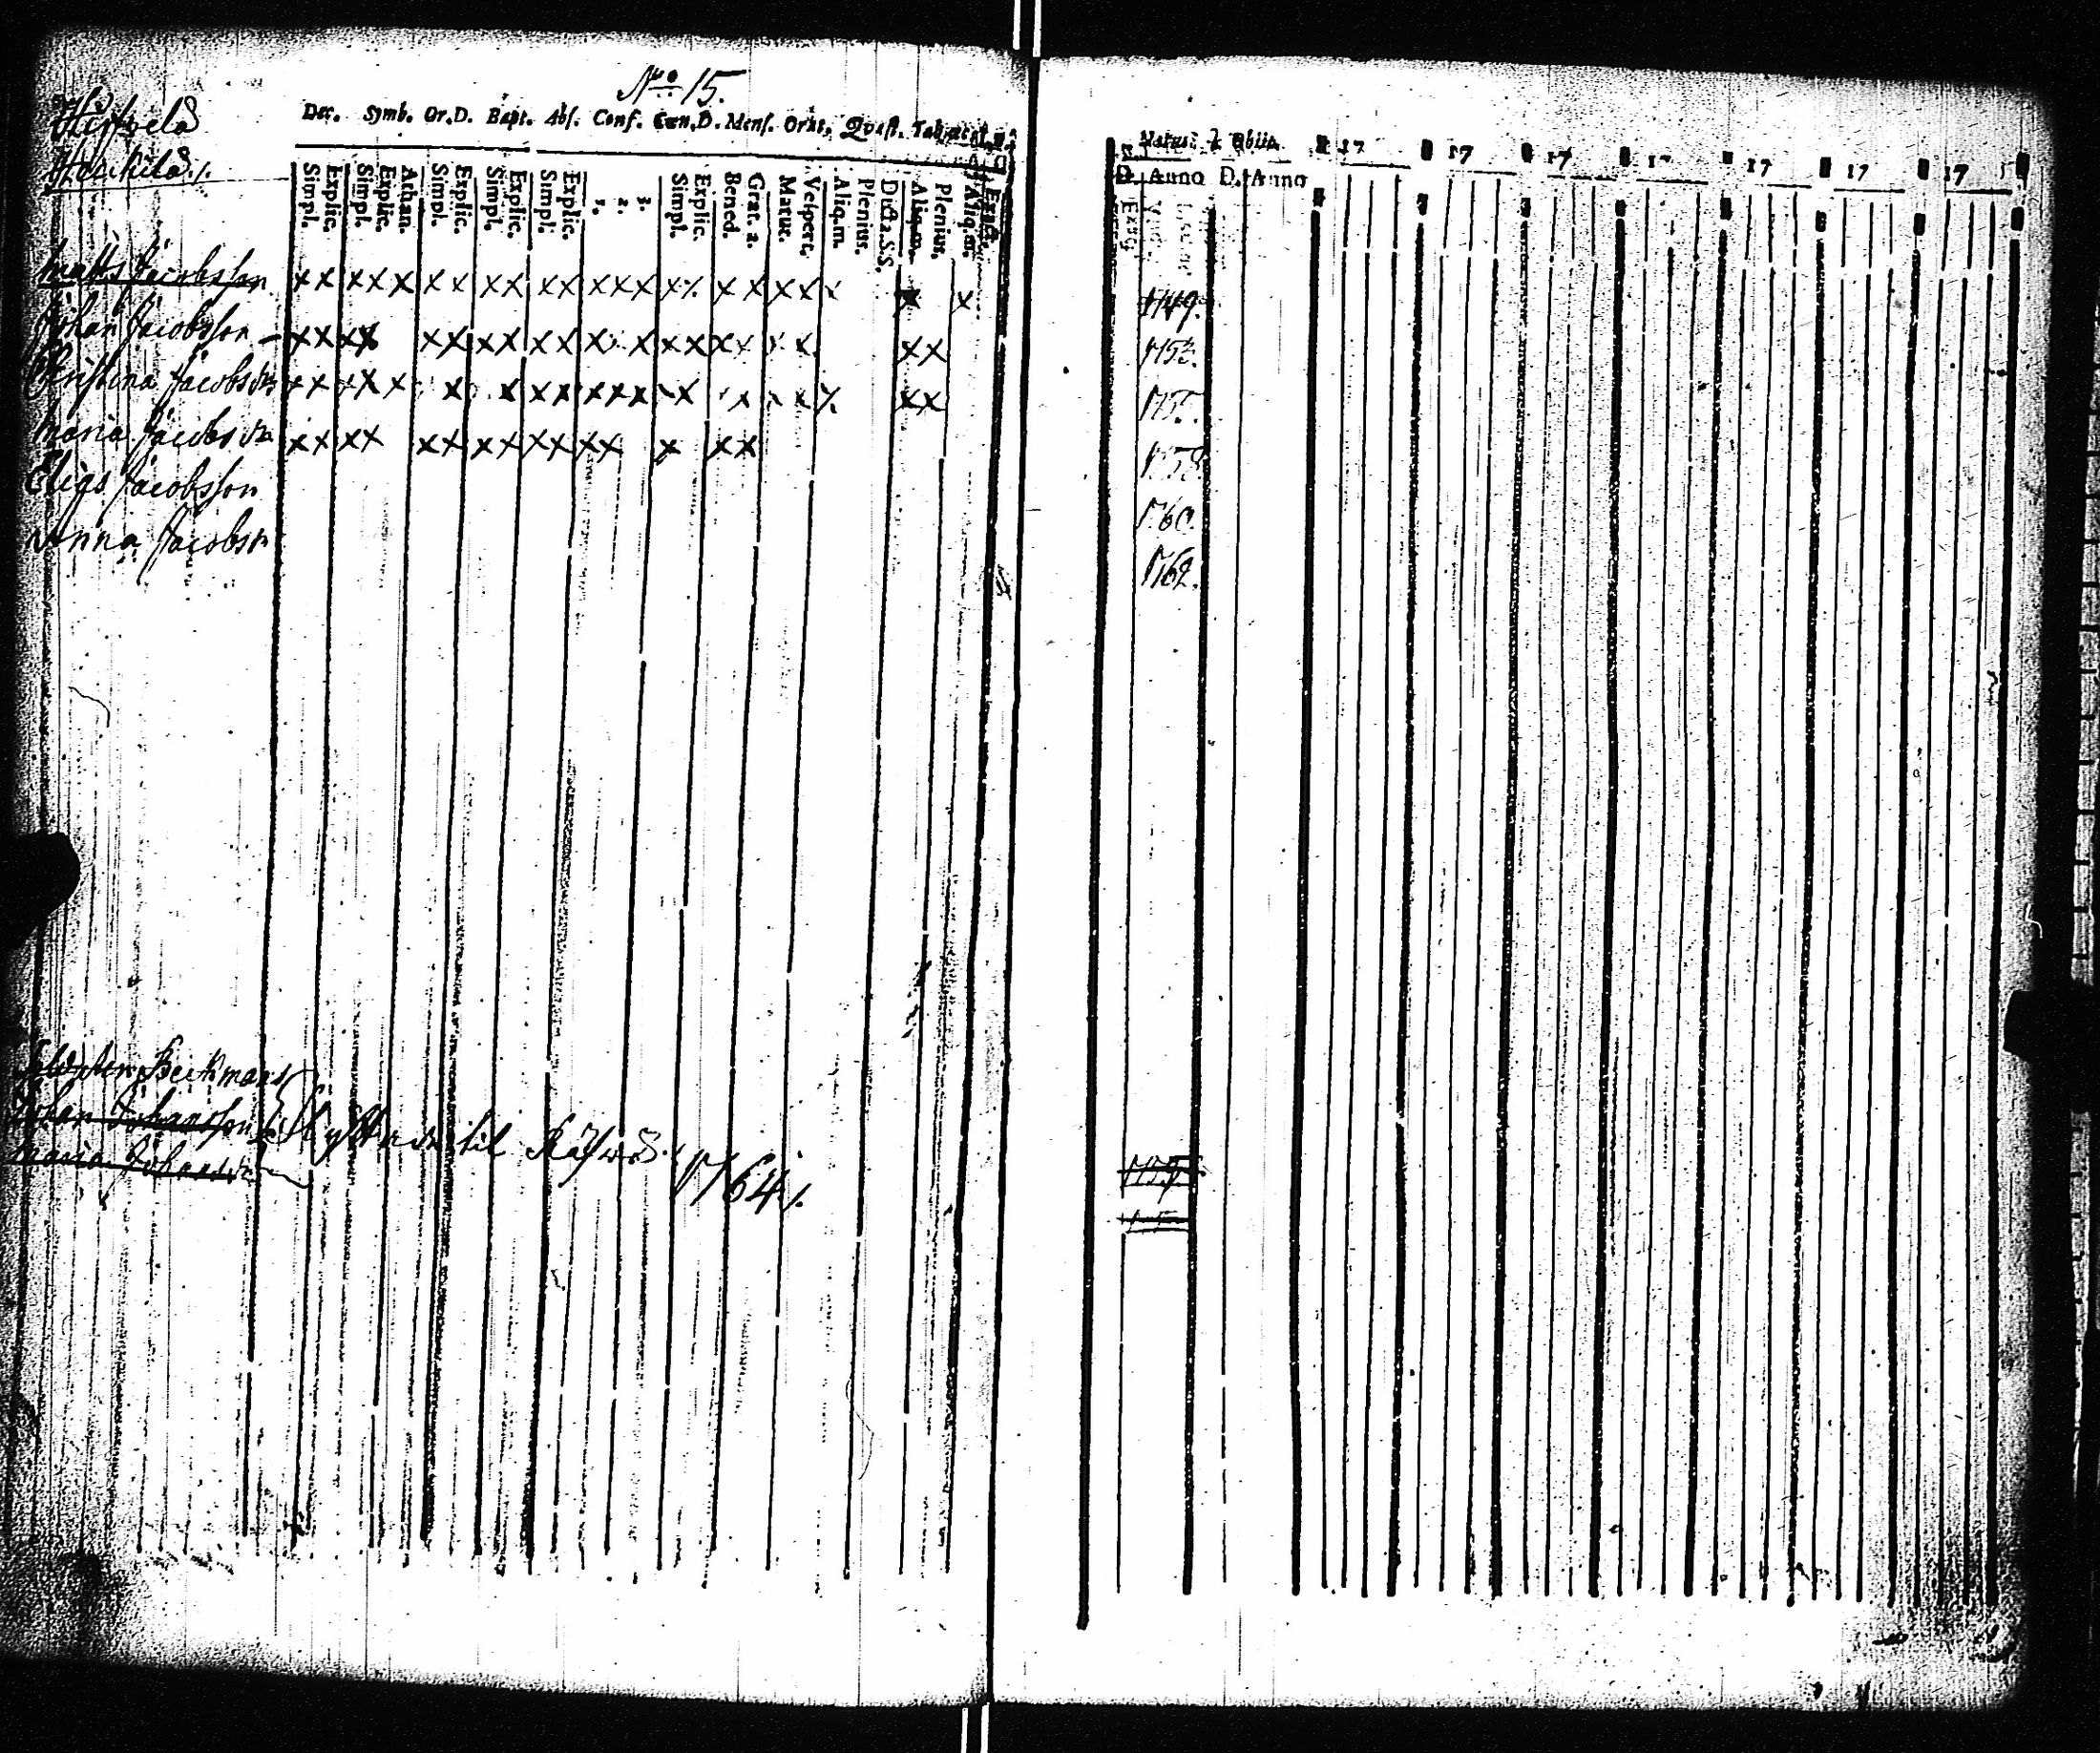 No 15.
Hirfvelä
Harhila
Dec. Symb. Or.D. Bapt. Abs. Conf. Cœn.D. Mens. Orat. Qvæst. Tab.
Simpl. Explic. Simpl. Explic. Athan. Simpl. Explic. Simpl. Explic. Simpl. Explic. 1. 2. 3. Simpl. Explic. Bened. Grat. a. Matut. Vespert. Aliq.m. Plenius. Dicta S.S. Aliq.m. Plenius. Aliq.m. Exact.
Natus Obiit 17 17 17 17 17 17 17
D. Anno D. Anno
Matts Jacobsson x x x x x x x x x x x x x x x x x x x x x x 1749.
Johan Jacobsson x x x x x x x x x x x x x x x x x x x x 1753.
Christina Jacobsdr x x x x x x x x x x x x x x x x x x x 175
Maria Jacobsdr x x x x x x x x x x x x x x x 1758
Elias Jacobsson 1760.
Anna Jacobsdr 1762.
Soldaten Beckmans
Johan Johansson
Flyttade til 1764
Maria Johansdr